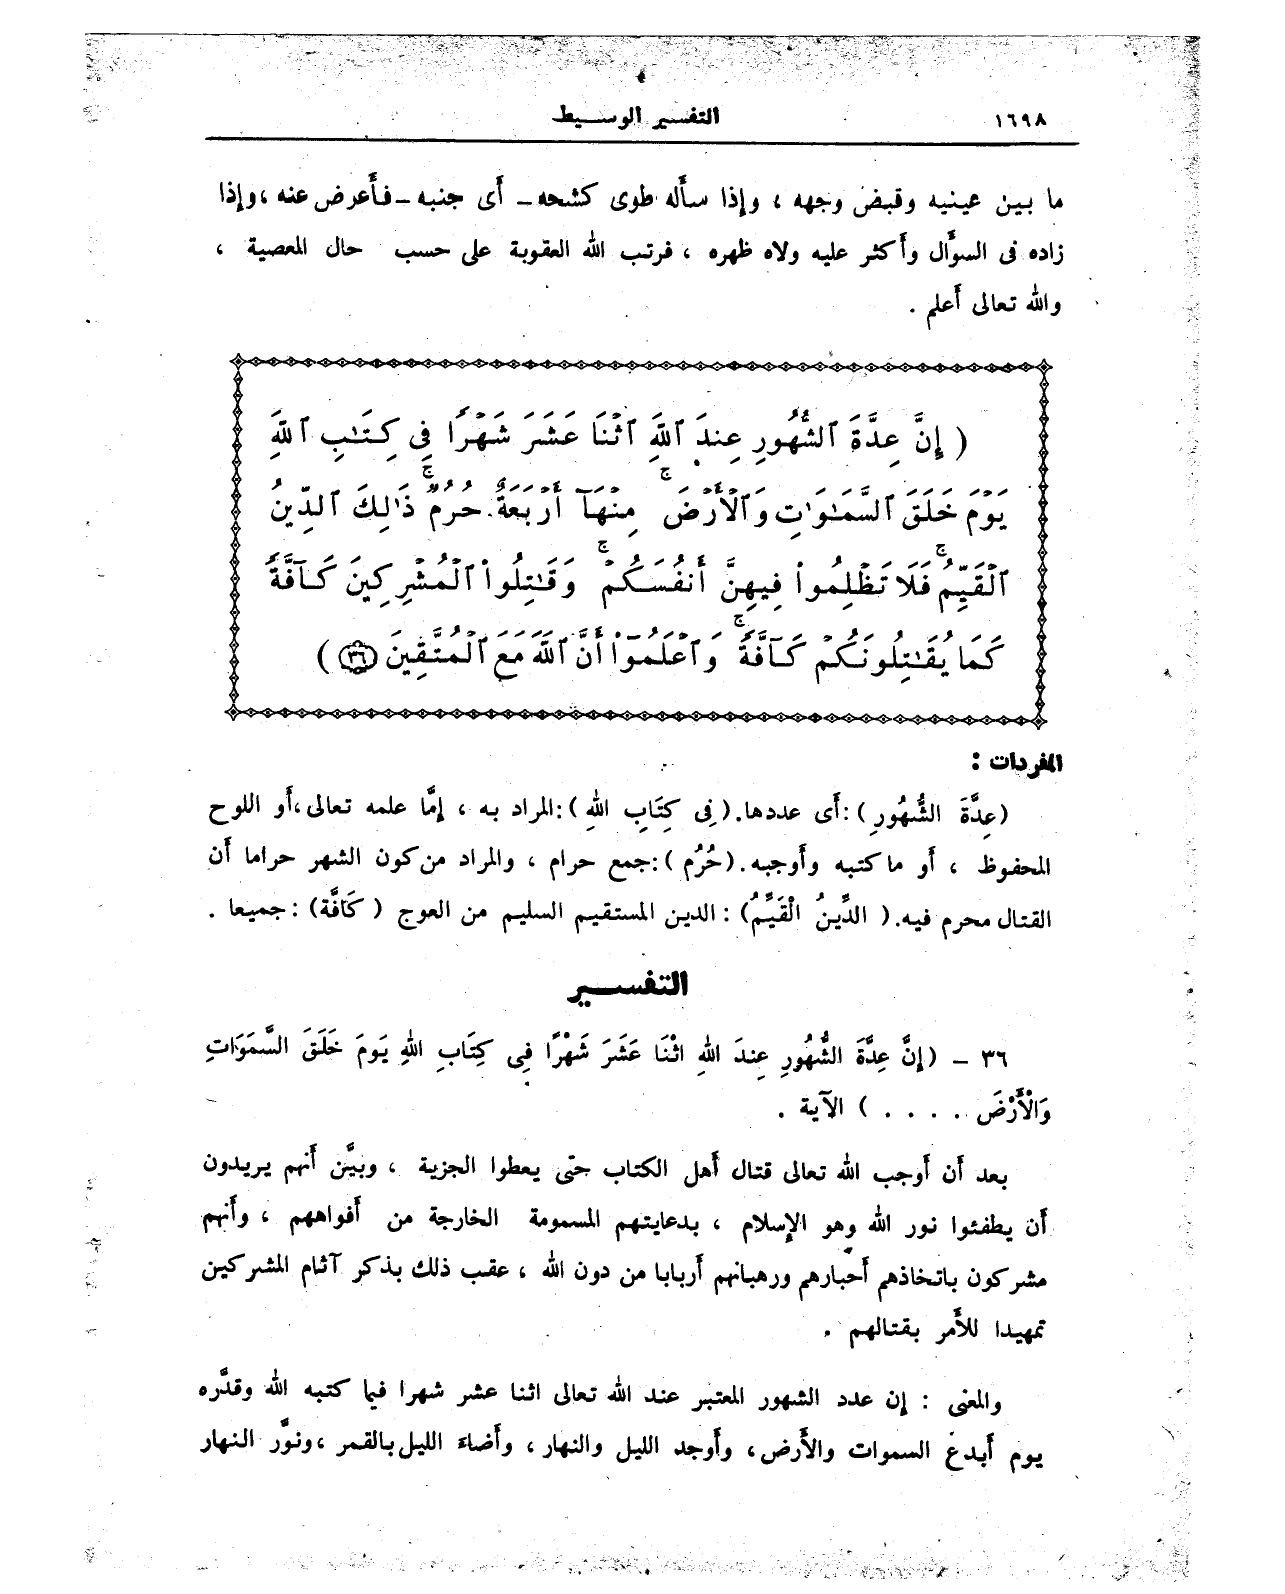 ١٦٩٨ التفسير الوسيط
ما بين عينيه وقبض وجهه ، وإذا سأله طوى كشحه – أى جنبه – فأعرض عنه ، وإذا
زاده فى السؤال وأكثر عليه ولاه ظهره ، فرتب الله العقوبة على حسب حال المعصية ،
والله تعالى أعلم .
( إِنَّ عِدَّةَ ٱلشُّهُورِ عِندَ ٱللَّهِ ٱثْنَا عَشَرَ شَهْرًا فِي كِتَٰبِ ٱللَّهِ
يَوْمَ خَلَقَ ٱلسَّمَٰوَٰتِ وَٱلْأَرْضَ مِنْهَآ أَرْبَعَةٌ حُرُمٌ ۚ ذَٰلِكَ ٱلدِّينُ
ٱلْقَيِّمُ ۚ فَلَا تَظْلِمُوا۟ فِيهِنَّ أَنفُسَكُمْ ۚ وَقَٰتِلُوا۟ ٱلْمُشْرِكِينَ كَآفَّةً
كَمَا يُقَٰتِلُونَكُمْ كَآفَّةً ۚ وَٱعْلَمُوٓا۟ أَنَّ ٱللَّهَ مَعَ ٱلْمُتَّقِينَ ٣٦ )
المفردات :
(عِدَّةَ الشُّهُورِ) : أى عددها. (فِى كِتَابِ اللهِ) : المراد به ، إمَّا علمه تعالى ، أو اللوح
المحفوظ ، أو ما كتبه وأوجبه. (حُرُم) : جمع حرام ، والمراد من كون الشهر حراما أن
القتال محرم فيه. ( الدِّينُ الْقَيِّمُ) : الدين المستقيم السليم من العوج ( كَافَّة) : جميعا .
التفسير
٣٦ – (إِنَّ عِدَّةَ الشُّهُورِ عِندَ اللهِ اثْنَا عَشَرَ شَهْرًا فِى كِتَابِ اللهِ يَومَ خَلَقَ السَّمَوَاتِ
وَالْأَرْضَ . . . . ) الآية .
بعد أن أوجب الله تعالى قتال أهل الكتاب حتى يعطوا الجزية ، وبيَّن أنهم يريدون
أن يطفئوا نور الله وهو الإسلام ، بدعايتهم المسمومة الخارجة من أفواههم ، وأنهم
مشركون باتخاذهم أحبارهم ورهبانهم أربابا من دون الله ، عقب ذلك بذكر آثام المشركين
تمهيدا للأمر بقتالهم .
والمعنى : إن عدد الشهور المعتبر عند الله تعالى اثنا عشر شهرا فيما كتبه الله وقدَّره
يوم أبدع السموات والأرض ، وأوجد الليل والنهار ، وأضاء الليل بالقمر ، ونوَّر النهار